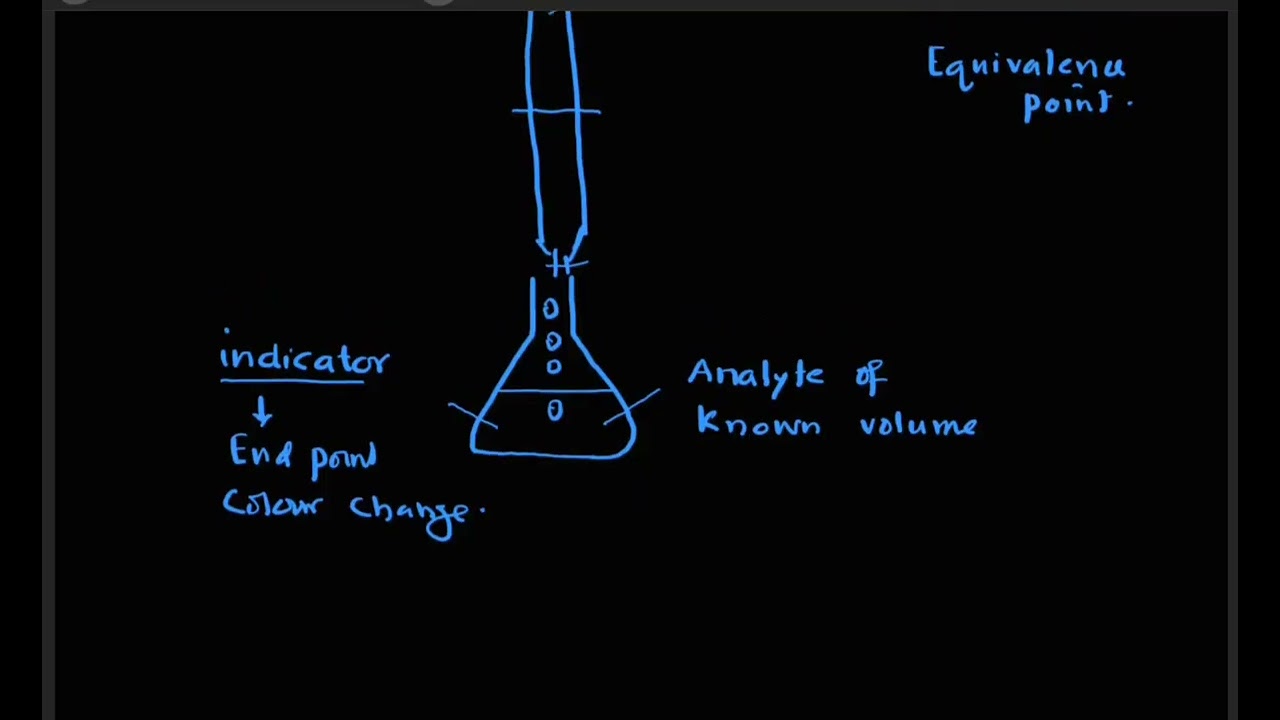 Equivalence
point.
indicator
End point
Colour change.
Analyte of
known volume